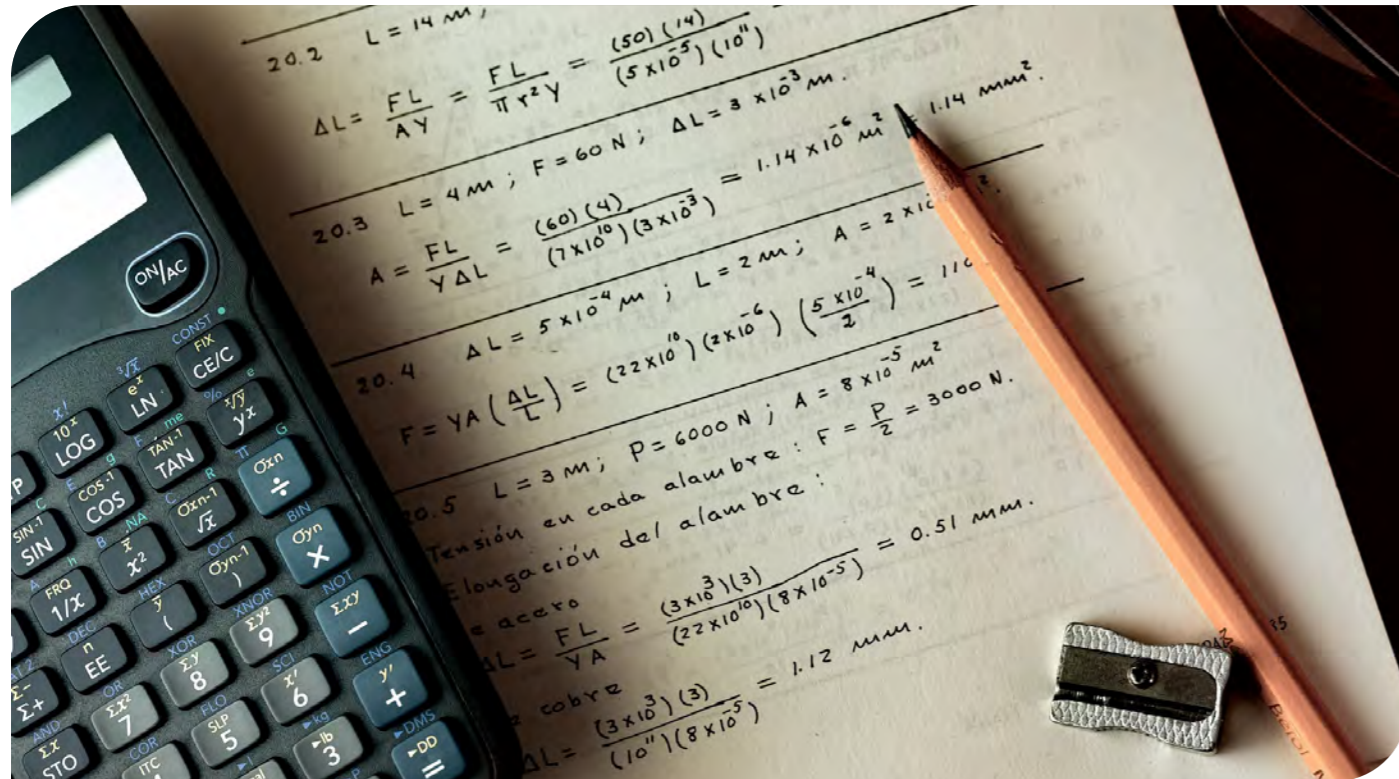 20.2 L = 14 m,
ΔL = FL/AY = FL/πr²Y = (50)(14)/(5x10⁻⁵)(10¹¹)
20.3 L = 4 m ; F = 60 N ; ΔL = 3 x10⁻³ m.
A = FL/YΔL = (60)(4)/(7x10¹⁰)(3x10⁻³) = 1.14 x10⁻⁶ m² = 1.14 mm².
20.4 ΔL = 5 x10⁻⁴ m ; L = 2 m ; A = 2 x10
F = YA (ΔL/L) = (22x10¹⁰)(2x10⁻⁶) (5 x10⁻⁴/2) = 110
20.5 L = 3 m ; P = 6000 N ; A = 8 x10⁻⁵ m²
Tensión en cada alambre : F = P/2 = 3000 N.
Elongación del alambre :
e acero
ΔL = FL/YA = (3x10³)(3)/(22x10¹⁰)(8x10⁻⁵) = 0.51 mm.
cobre
ΔL = (3x10³)(3)/(10¹¹)(8x10⁻⁵) = 1.12 mm.
ON/AC
CONST
³√x e
FIX
CE/C
x! eˣ
LN
% ˣ√y
yˣ
10ˣ
LOG
F me
TAN⁻¹
TAN
π G
σxn
÷
P
E g
COS⁻¹
COS
C R
σxn-1
√x
BIN
σyn
×
C
SIN⁻¹
SIN
B NA
x̄
x²
OCT
σyn-1
)
NOT
Σxy
−
A h
FRQ
1/x
HEX
ȳ
(
XNOR
Σy²
9
ENG
y'
+
DEC
n
EE
XOR
Σy
8
SCI
x'
6
►DMS
►DD
=
STAT 2
Σ−
Σ+
OR
Σx²
7
FLO
SLP
5
►kg
►lb
3
AND
Σx
STO
COR
ITC
Berol